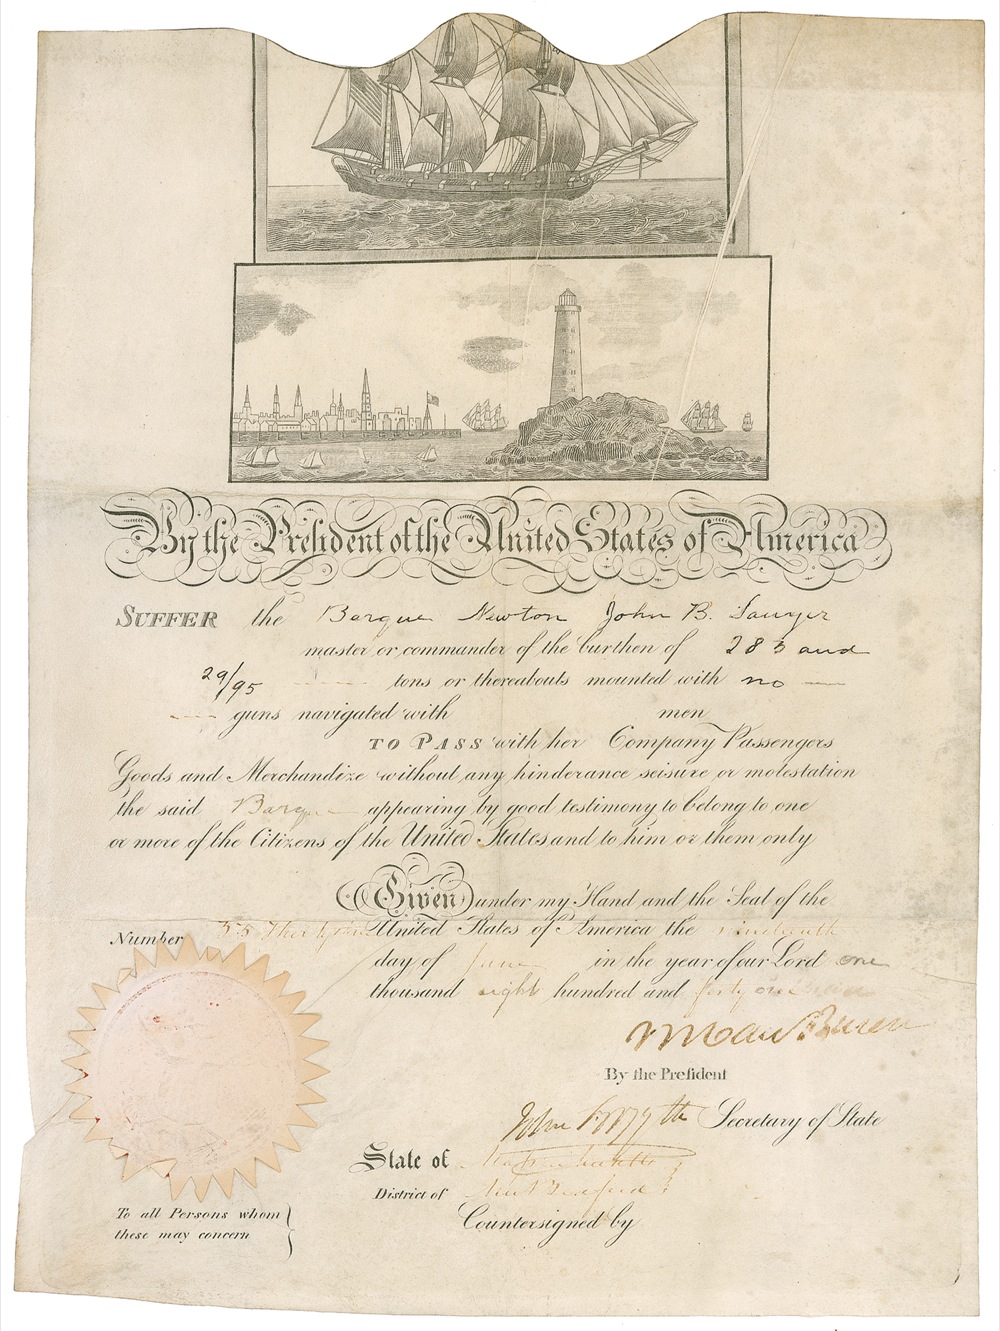 By the President of the United States of America
SUFFER the Barque Newton John B. Sawyer
master or commander of the burthen of 283 and
29/95 tons or thereabouts mounted with no
guns navigated with men
TO PASS with her Company Passengers
Goods and Merchandize without any hinderance seisure or molestation
the said Barque appearing by good testimony to belong to one
or more of the Citizens of the United States and to him or them only
Given under my Hand and the Seal of the
Number 35 United States of America the nineteenth
day of June in the year of our Lord one
thousand eight hundred and forty one
M Van Buren
By the President
John Forsyth Secretary of State
State of Massachusetts
District of New Bedford
Countersigned by
To all Persons whom
these may concern